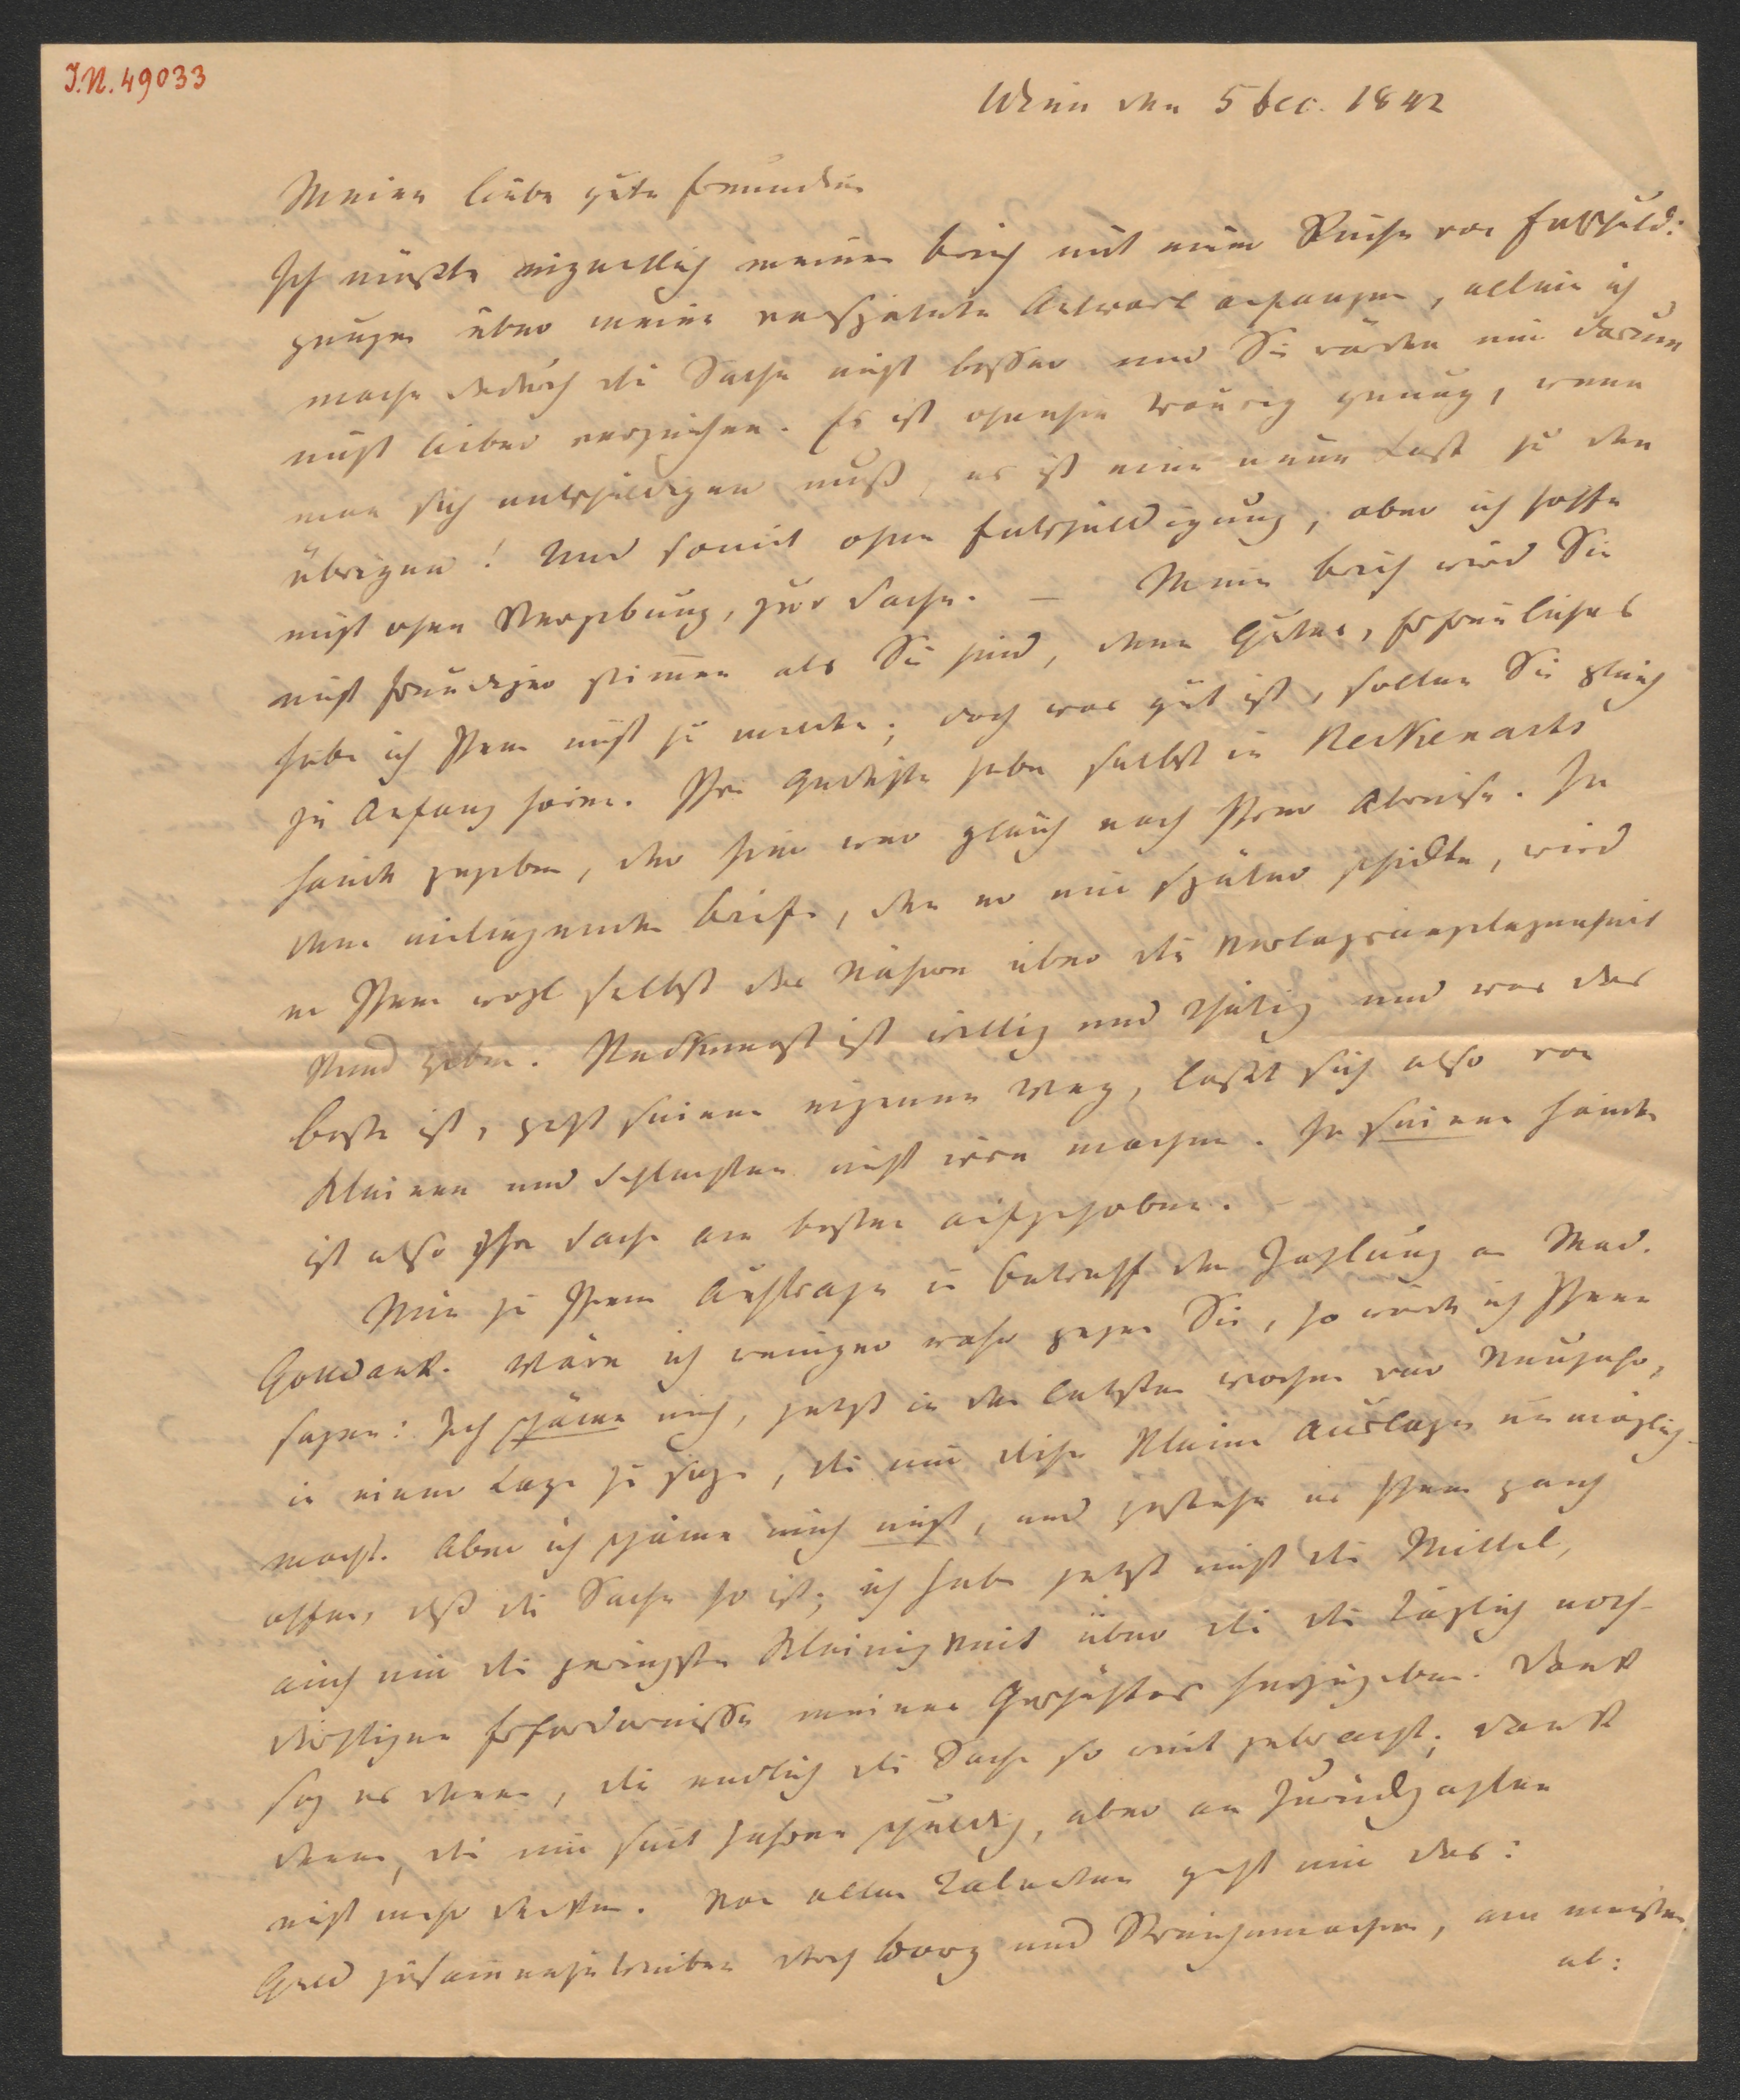 J.N. 49033
Wien den 5 Dec. 1842
Meine liebe gute Freundin
Ich müßte eigentlich meinen Brief mit einer Reihe von Entschuld:
gungen über meine verspätete Antwort anfangen, allein ich
mache dadurch die Sache nicht besser und Sie würden mir darum
nicht lieber verzeihen. Es ist ohnehin traurig genug, wenn
man sich entschuldigen muß, es ist eine neue Last zu den
übrigen! Und somit ohne Entschuldigung, aber ich hoffe
nicht ohne Vergebung, zur Sache. – Mein Brief wird Sie
nicht freudiger stimmen als Sie sind, denn Gutes, Erfreuliches
habe ich Ihnen nicht zu melden; doch was gut ist, sollen Sie gleich
zu Anfang hören. Ihre Gedichte habe selbst in Heckenasts
Hände gegeben, der hier war gleich nach Ihrer Abreise. In
dem einliegenden Briefe, den er mir später schickte, wird
er Ihnen wohl selbst das Nähere über die Verlagsangelegenheit
kund geben. Heckenast ist willig und thätig und was das
beste ist, geht seinen eigenen Weg, laßt sich also von
Kleinen und Schlechten nicht irre machen. In seinen Händen
ist also Ihre Sache am besten aufgehoben. –
Nun zu Ihrem Auftrage in Betreff der Zahlung an Mad.
Goldank. Wäre ich weniger wahr gegen Sie, so würde ich Ihnen
sagen: Ich schäme mich, jetzt in den letzten Wochen vor Neujahr,
in einer Lage zu sein, die mir diese kleine Auslage unmöglich
macht. Aber ich schäme mich nicht, und gestehe es Ihnen ganz
offen, daß die Sache so ist; ich habe jetzt nicht die Mittel,
auch nur die geringste Kleinigkeit über die die täglich noth-
dürftigen Erfordernisse meines Geschäftes herzugeben. Dank
sey es denen, die endlich die Sache so weit gebracht; Dank
denen, die mir seit Jahren schuldig, aber an Zurückzahlen
nicht mehr denken. Von allen Talenten geht mir das:
Geld zusammenzutreiben durch Borg und Streichemachen, am meisten
ab: